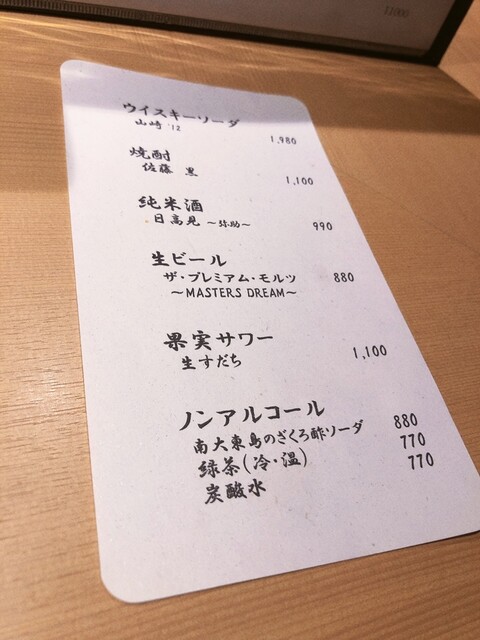 ウイスキーソーダ
山崎 '12 1,980
焼酎
佐藤 黒 1,100
純米酒
日高見 ～弥助～ 990
生ビール
ザ・プレミアム・モルツ 880
～MASTERS DREAM～
果実サワー
生すだち 1,100
ノンアルコール
南大東島のざくろ酢ソーダ 880
緑茶(冷・温) 770
炭酸水 770